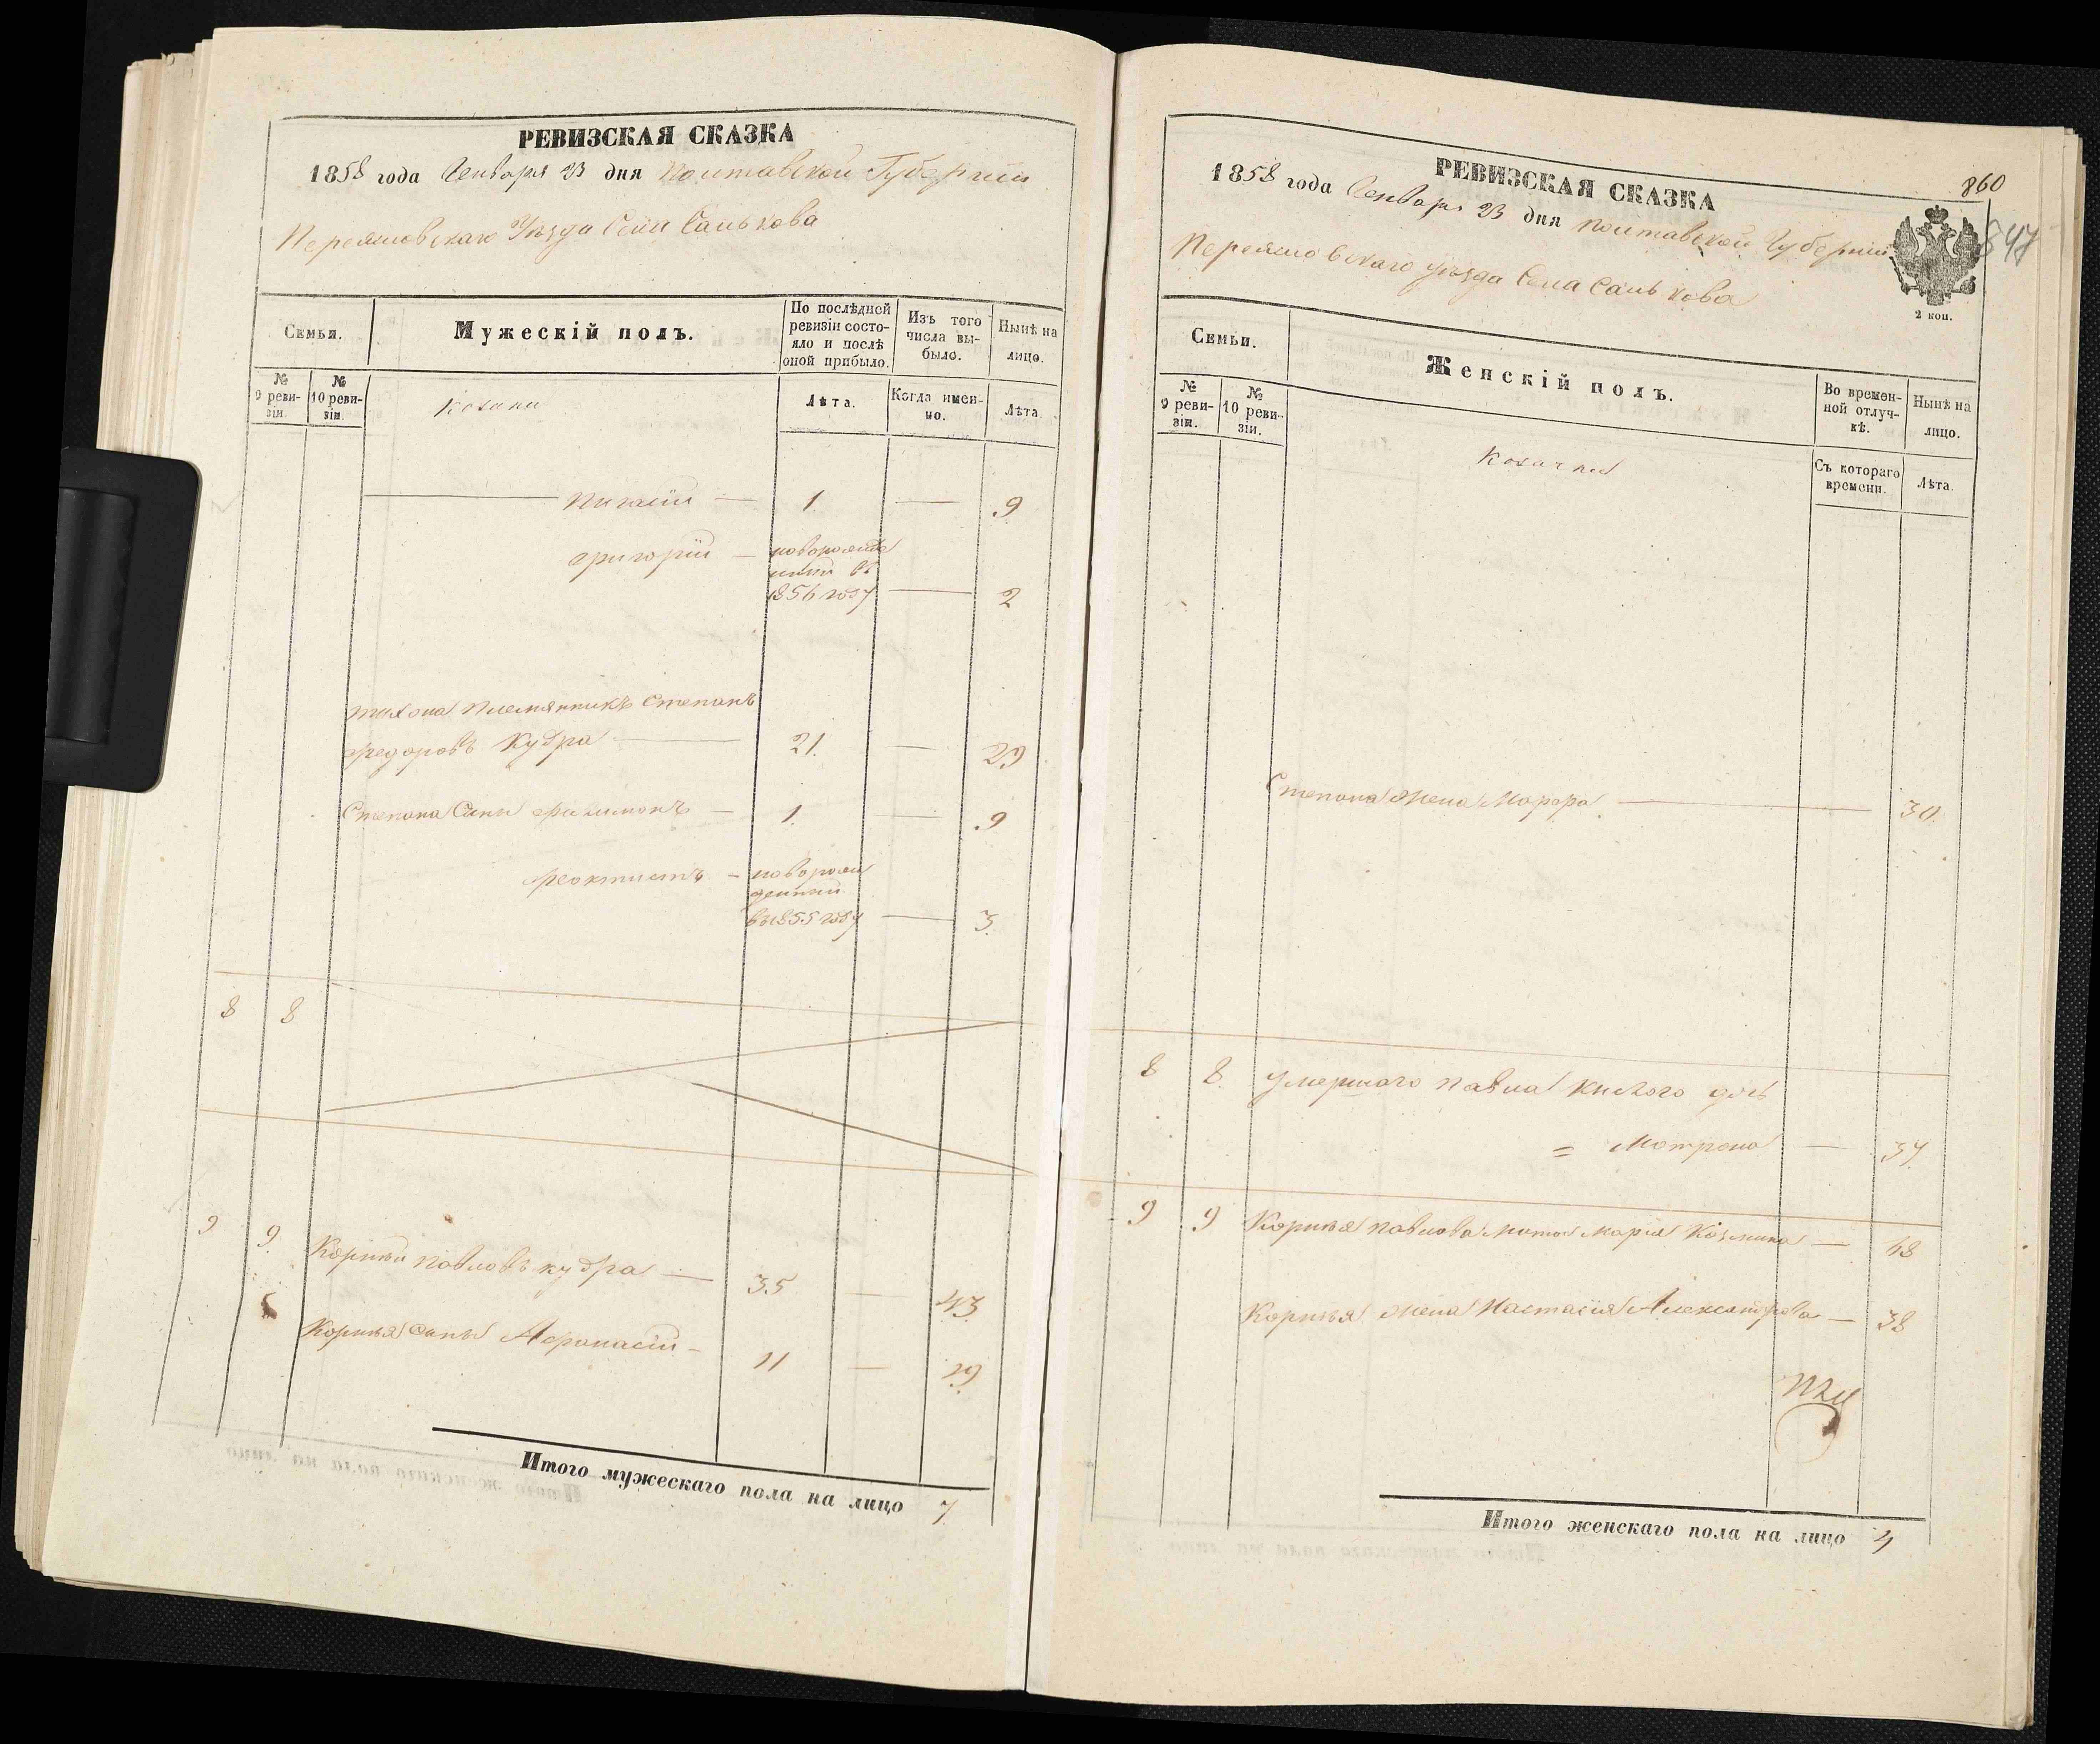 РЕВИЗСКАЯ СКАЗКА
1858 года Генваря 23 дня Полтавской Губернии
Переяславскаго Уезда Села Санькова
Семьи.
Мужескій полъ.
По послѣдней ревизіи состояло и послѣ оной прибыло.
Изъ того числа выбыло.
Нынѣ на лицо.
№ 9 ревизіи.
№ 10 ревизіи.
Козаки
Лѣта.
Когда именно.
Лѣта.
1. 9
Григорій — новорожденный въ 1856 году — 2
Тихона племянникъ Степанъ
Федоровъ Кудра — 21. — 29
Степана Сыны Филимонъ — 1. — 9
Феоктистъ — новорожденный въ 1855 году — 3.
8 8
9 9. Корнѣй Павловъ Кудра — 35 — 43
Корнѣя сынъ Афанасій — 11 — 19.
Итого мужескаго пола на лицо 7
860
847
РЕВИЗСКАЯ СКАЗКА
1858 года Генваря 23 дня Полтавской Губерніи
Переяславскаго уѣзда Села Санькова
2 коп.
Семьи.
Женскій полъ.
Во временной отлучкѣ.
Нынѣ на лицо.
№ 9 ревизіи.
№ 10 ревизіи.
Козачки
Съ котораго времени.
Лѣта.
Степана жена Марфа — 30.
8 8. Умершаго Павла дочь
= Мотрона — 37.
9 9 Корнѣя Павлова мать Марія — 68
Корнѣя жена Настасія Александрова — 38
Итого женскаго пола на лицо 4